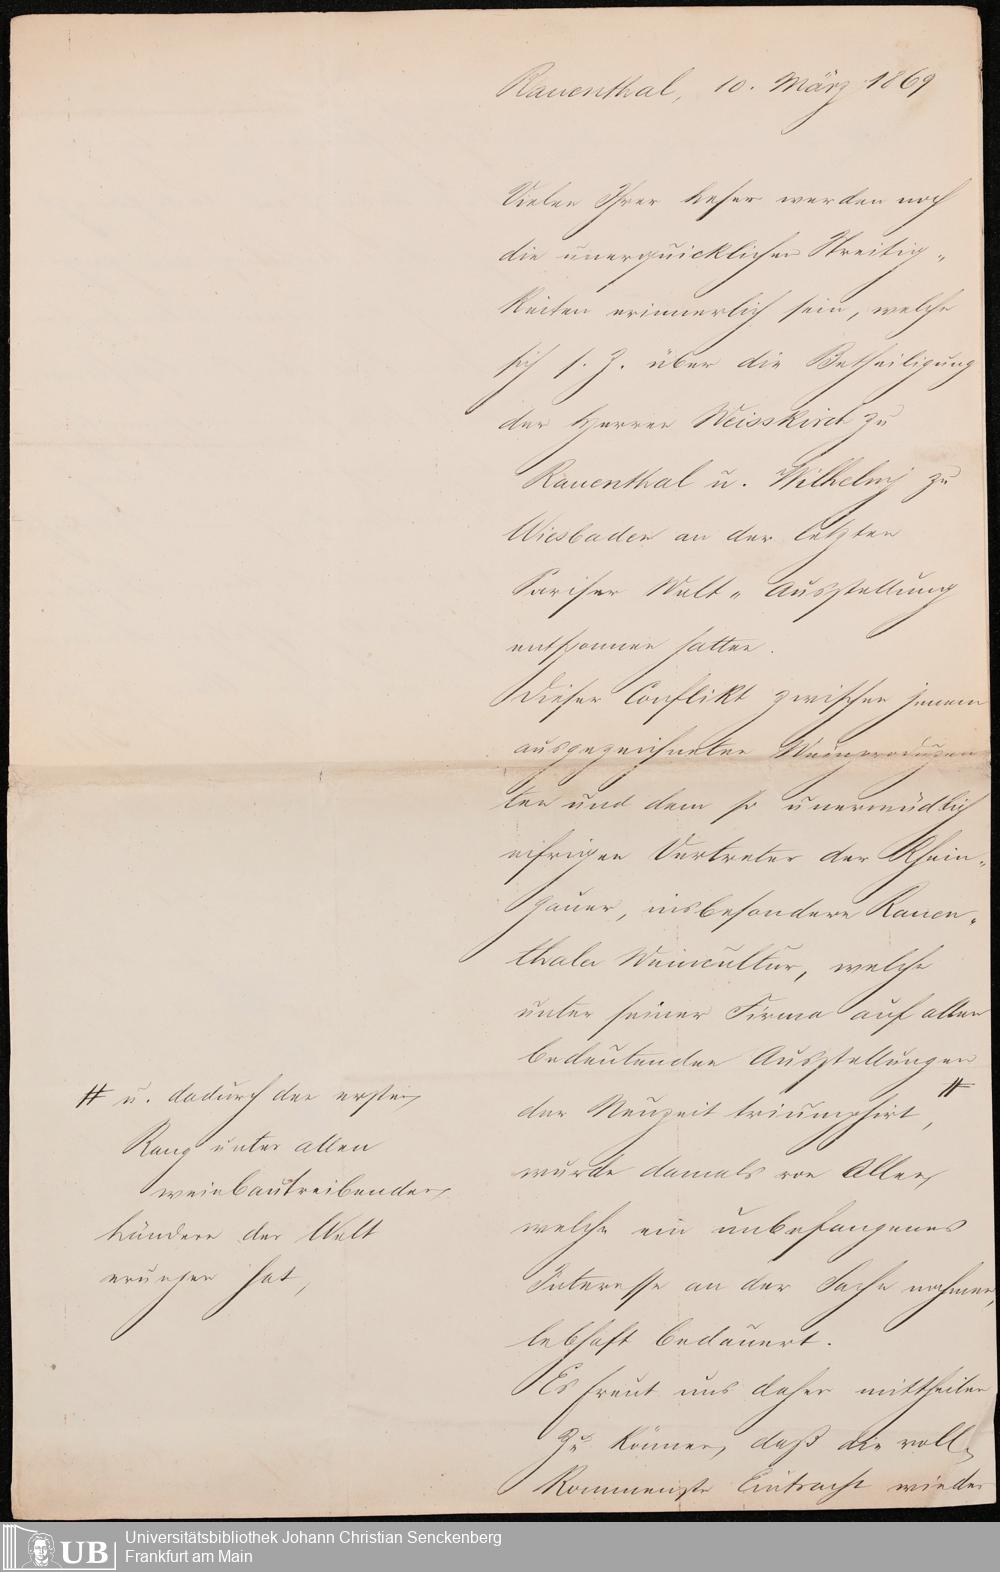 Rauenthal, 10. März 1869
Vielen Ihrer Leser werden noch
die unerquicklichen Streitig-
keiten erinnerlich sein, welche
sich s. Z. über die Betheiligung
der Herren Weisskirch zu
Rauenthal u. Wilhelmj zu
Wiesbaden an der letzten
Pariser Welt-Ausstellung
entsponnen hatten.
Dieser Conflikt zwischen jenem
ausgezeichneten Weinproduzen
ten und dem so unermüdlich
eifrigen Vertreter der Rhein-
gauer, insbesondere Rauen-
thaler Weincultur, welche
unter seiner Firma auf allen
bedeutenden Ausstellungen
der Neuzeit triumphirt, #
wurde damals von Allen,
welche ein unbefangenes
Interesse an der Sache nahmen,
lebhaft bedauert.
Es freut uns daher mittheilen
zu können, daß die voll-
kommenste Eintracht wieder
# u. dadurch den ersten
Rang unter allen
weinbautreibenden
Ländern der Welt
errungen hat,
Universitätsbibliothek Johann Christian Senckenberg
Frankfurt am Main
UB